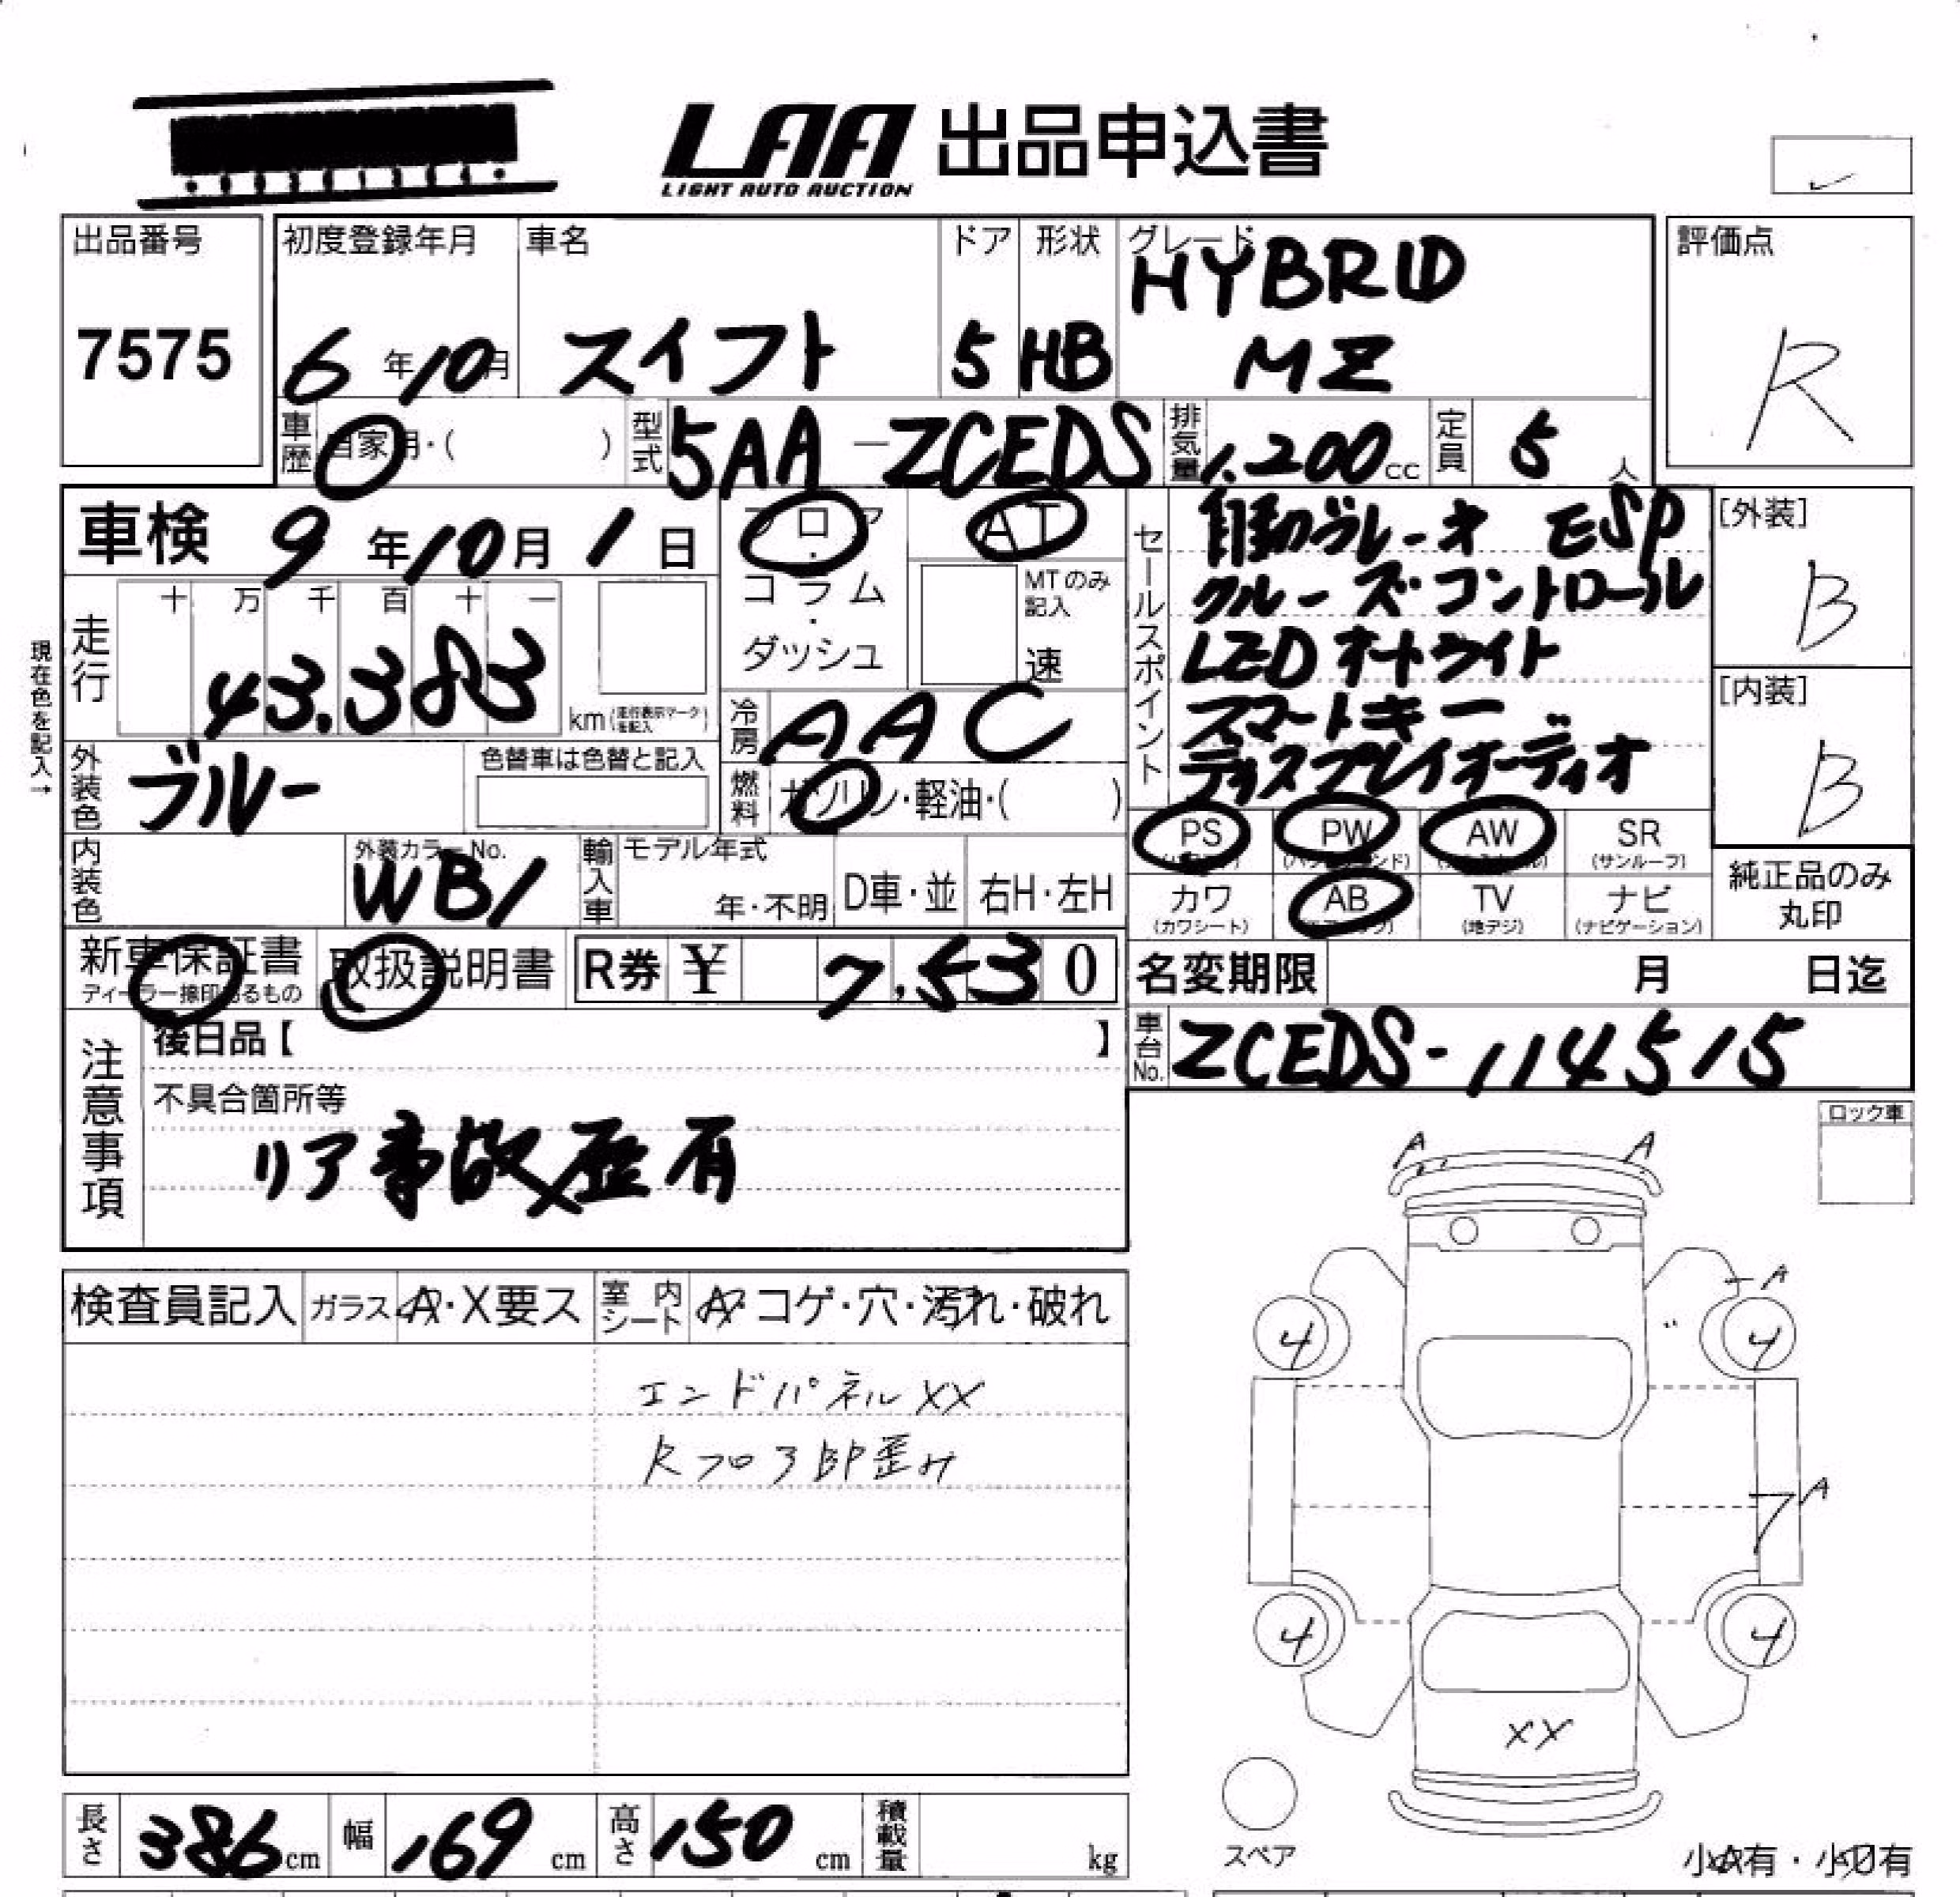 LAA 出品申込書
LIGHT AUTO AUCTION
出品番号
7575
初度登録年月
6年10月
車名
スイフト
ドア
5
形状
HB
グレード
HYBRID
MZ
評価点
R
車歴
自家用・( )
型式
5AA-ZCEDS
排気量
1.200cc
定員
5人
車検 9年10月1日
フロア・コラム・ダッシュ
AT
MTのみ記入
速
セールスポイント
自動ブレーキ ESP
クルーズ・コントロール
LEDオートライト
スマートキー
ディスプレイオーディオ
[外装]
B
[内装]
B
現在色を記入→
走行
十 万 千 百 十 一
43.383
km(走行表示マークを記入)
冷房
AAC
外装色
ブルー
色替車は色替と記入
燃料
ガソリン・軽油・( )
PS
PW
AW
SR
(サンルーフ)
内装色
外装カラーNo.
WB1
輸入車
モデル年式
年・不明
D車・並
右H・左H
カワ
(カワシート)
AB
TV
(地デジ)
ナビ
(ナビゲーション)
純正品のみ
丸印
新車保証書
ディーラー捺印あるもの
取扱説明書
R券 ¥ 7,530
名変期限 月 日迄
車台No.
ZCEDS-114515
注意事項
後日品【 】
不具合箇所等
リア事故歪有
ロック車
検査員記入
ガラス
A・X要ス
室内シート
A・コゲ・穴・汚れ・破れ
エンドパネルXX
Rフロア部歪み
A
A
A
4
4
A
4
4
XX
スペア
小A有・小U有
長さ
386cm
幅
169cm
高さ
150cm
積載量
kg